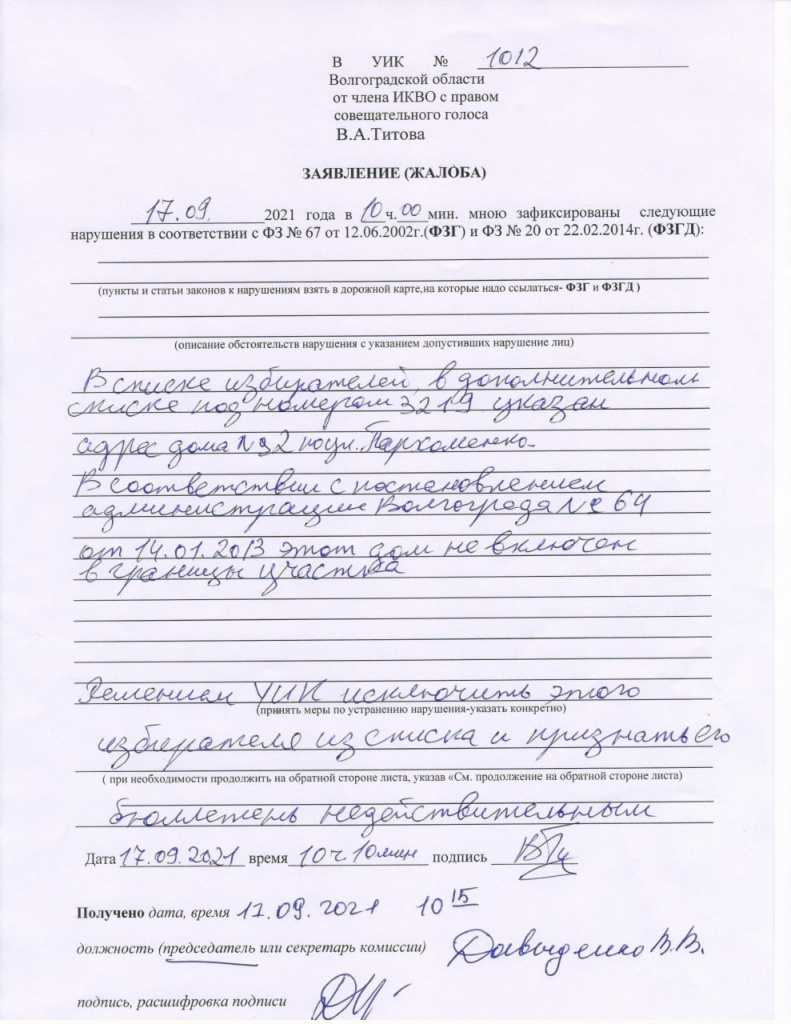 В УИК № 1012
Волгоградской области
от члена ИКВО с правом
совещательного голоса
В.А.Титова
ЗАЯВЛЕНИЕ (ЖАЛОБА)
17.09. 2021 года в 10 ч. 00 мин. мною зафиксированы следующие
нарушения в соответствии с ФЗ № 67 от 12.06.2002г.(ФЗГ) и ФЗ № 20 от 22.02.2014г. (ФЗГД):
(пункты и статьи законов к нарушениям взять в дорожной карте,на которые надо ссылаться- ФЗГ и ФЗГД )
(описание обстоятельств нарушения с указанием допустивших нарушение лиц)
В списке избирателей, в дополнительном
списке под номером 3219 указан
адрес дома №32 по ул. Пархоменко.
В соответствии с постановлением
администрации Волгограда № 64
от 14.01.2013 этот дом не включен
в границы участка
Решением УИК исключить этого
(принять меры по устранению нарушения-указать конкретно)
избирателя из списка и признать его
( при необходимости продолжить на обратной стороне листа, указав «См. продолжение на обратной стороне листа)
бюллетень недействительным
Дата 17.09.2021 время 10 ч 10 мин подпись
Получено дата, время 17.09.2021 10 15
должность (председатель или секретарь комиссии) Давыденко В.В.
подпись, расшифровка подписи